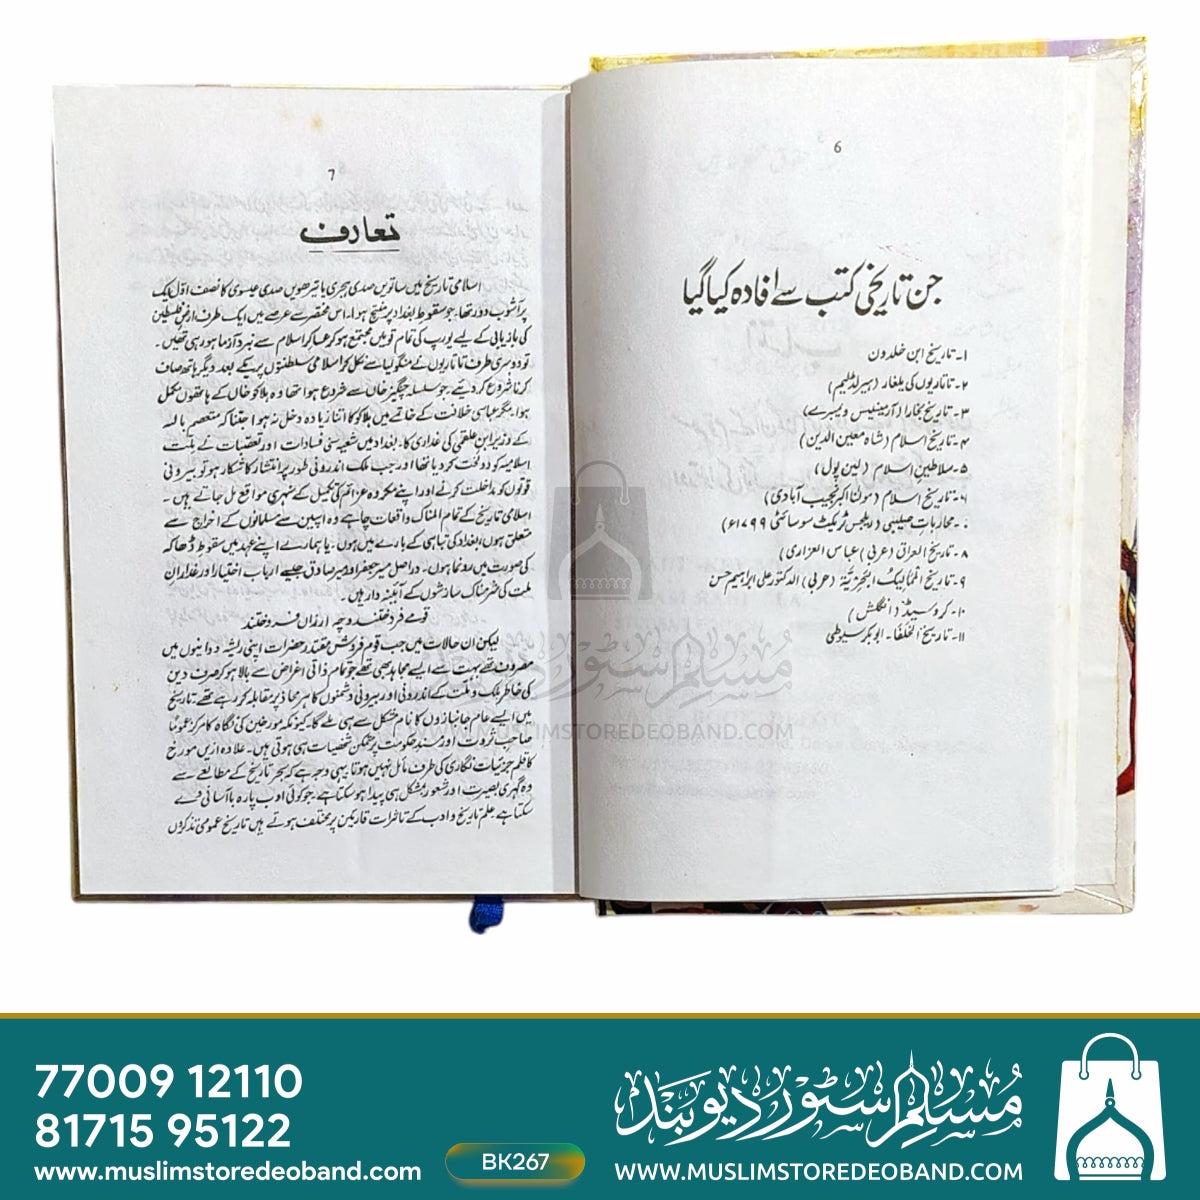 6
جن تاریخی کتب سے افادہ کیا گیا
۱۔ تاریخ ابن خلدون
۲۔ تاتاریوں کی یلغار (ہیرلڈلیم)
۳۔ تاریخ بخارا (آرمینیس ویمبرے)
۴۔ تاریخ اسلام (شاہ معین الدین)
۵۔ سلاطین اسلام (لین پول)
۶۔ تاریخ اسلام (مولٰنا اکبر نجیب آبادی)
۷۔ محاربات صلیبی (ریلیجس ٹریکٹ سوسائٹی ۱۷۹۹ء)
۸۔ تاریخ العراق (عربی) عباس العزاری)
۹۔ تاریخ الممالیک البحریۃ (عربی) الدکتور علی ابراہیم حسن
۱۰۔ کروسیڈز (انگلش)
۱۱۔ تاریخ الخلفا۔ ابوبکر سیوطی
7
تعارف
اسلامی تاریخ میں ساتویں صدی ہجری یا تیرھویں صدی عیسوی کا نصف اوّل ایک
پر آشوب دور تھا۔ جو سقوط بغداد پر منتج ہوا۔ اس مختصر سے عرصے میں ایک طرف ارض فلسطین
کی بازیابی کے لیے یورپ کی تمام قومیں مجتمع ہو کر عساکر اسلام سے نبرد آزما ہو رہی تھیں۔
تو دوسری طرف تاتاریوں نے منگولیا سے نکل کر اسلامی سلطنتوں پر یکے بعد دیگر ہاتھ صاف
کرنا شروع کر دیئے۔ جو سلسلہ چنگیز خاں سے شروع ہوا تھا وہ ہلاکو خاں کے ہاتھوں مکمل
ہوا۔ مگر عباسی خلافت کے خاتمے میں ہلاکو کا اتنا زیادہ دخل نہ ہوا جتنا کہ معتصم باللہ
کے وزیر ابن علقمی کی غداری کا۔ بغداد میں شیعہ سنی فسادات اور تعصبات نے ملت
اسلامیہ کو دولخت کر دیا تھا اور جب ملک اندرونی طور پر انتشار کا شکار ہو تو بیرونی
قوتوں کو مداخلت کرنے اور اپنے مکروہ عزائم کی تکمیل کے سنہری مواقع مل جاتے ہیں۔
اسلامی تاریخ کے تمام المناک واقعات چاہے وہ اسپین سے مسلمانوں کے اخراج سے
متعلق ہوں، بغداد کی تباہی کے بارے میں ہوں۔ یا ہمارے اپنے عہد میں سقوط ڈھاکہ
کی صورت میں رونما ہوں۔ دراصل میر جعفر اور میر صادق جیسے ارباب اختیار اور غداران
ملت کی شرمناک سازشوں کے آئینہ دار ہیں۔
قومے فروختند و چہ ارزاں فروختند
لیکن ان حالات میں جب قوم فروش مقتدر حضرات اپنی ریشہ دوانیوں میں
مصروف تھے بہت سے ایسے مجاہد بھی تھے جو تمام ذاتی اغراض سے بالا ہو کر صرف دین
کی خاطر ملک و ملت کے اندرونی اور بیرونی دشمنوں کا ہر محاذ پر مقابلہ کر رہے تھے۔ تاریخ
میں ایسے عام جانبازوں کا نام مشکل سے ہی ملے گا۔ کیونکہ مورخین کی نگاہ کا مرکز عموماً
صاحب ثروت اور مسند حکومت پر متمکن شخصیات ہی ہوتی ہیں۔ علاوہ ازیں مورخ
کا قلم جزئیات نگاری کی طرف مائل نہیں ہوتا یہی وجہ ہے کہ سحر تاریخ کے مطالعے سے
وہ گہری بصیرت اور شعور بمشکل ہی پیدا ہو سکتا ہے۔ جو کوئی ادب پارہ باآسانی دے
سکتا ہے۔ علم تاریخ و ادب کے تاثرات قارئین پر مختلف ہوتے ہیں تاریخ عمومی تذکروں
مسلم سٹور دیوبند
WWW.MUSLIMSTOREDEOBAND.COM
77009 12110
81715 95122
www.muslimstoredeoband.com
BK267
مسلم سٹور دیوبند
WWW.MUSLIMSTOREDEOBAND.COM